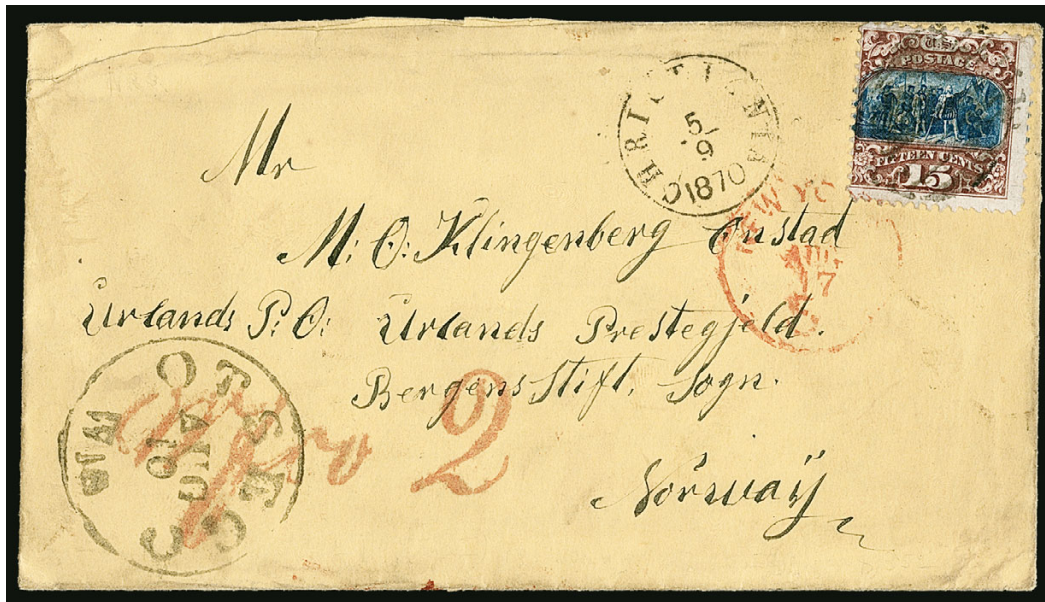 U.S.
POSTAGE
FIFTEEN CENTS
15
CHRISTIANIA
5
9
1870
NEW YORK
AUG
17
Mr
M: O: Klingenberg Onstad
Urlands P: O: Urlands Prestegjeld.
Bergens Stift, Sogn.
Norway
OTSEGO
WIS
AUG
10
2